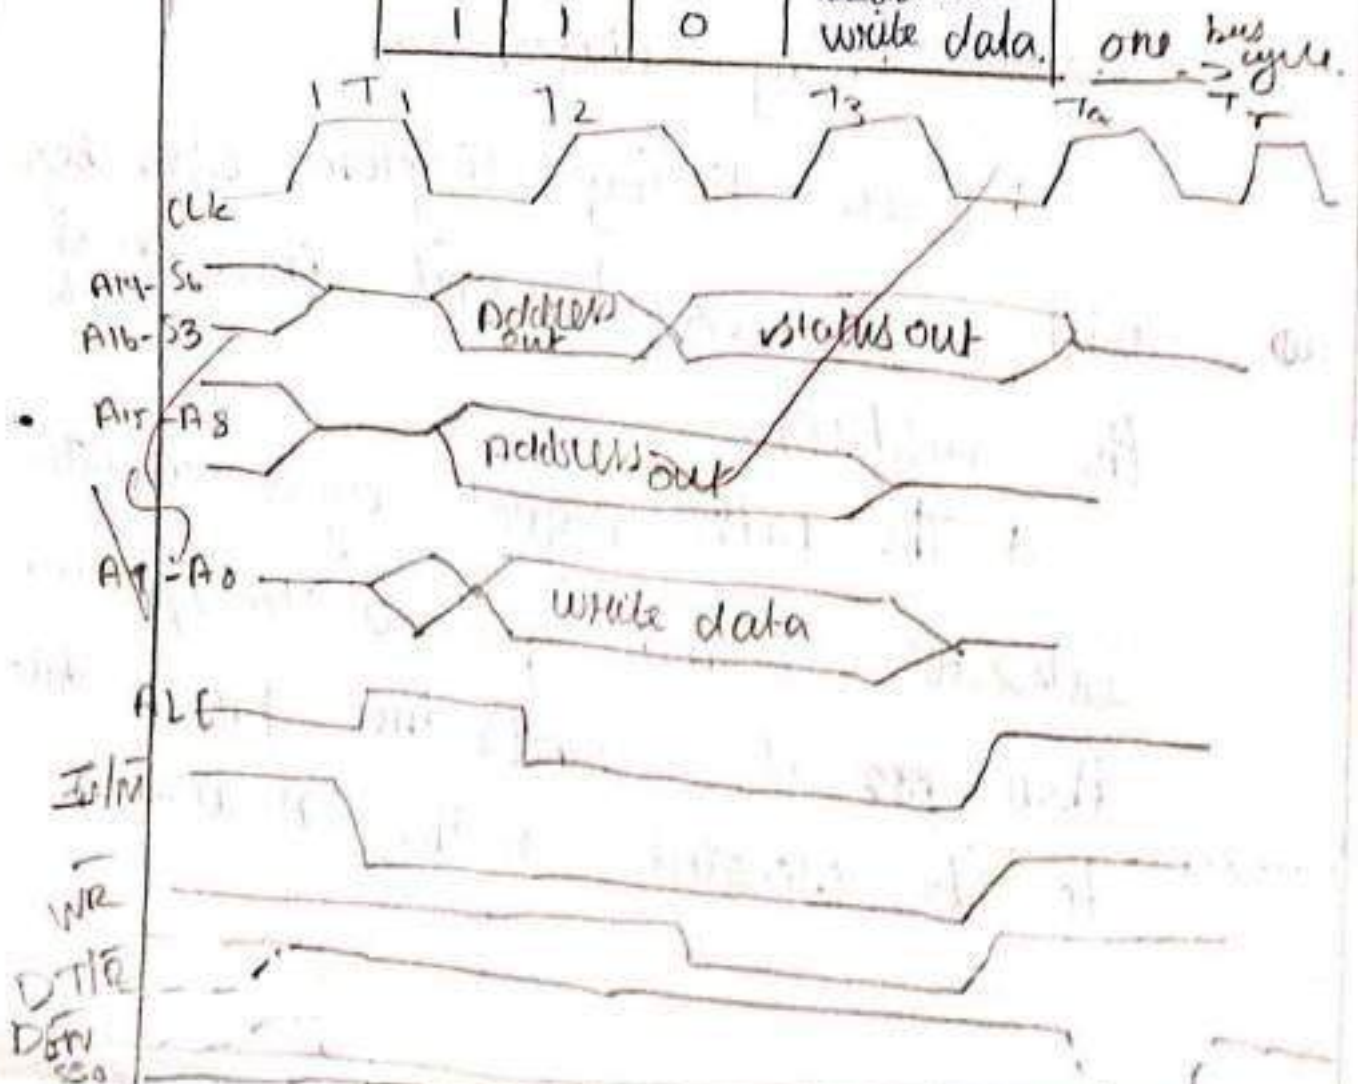 1 1 0 write data. one bus cycle.
T T2 T3
CLK
A19-S6
A16-S3
Address out
status out
A15-A8
Address out
-A0
write data
ALE
IO/M̅
W̅R̅
DT/R̅
D̅E̅N̅
SS0